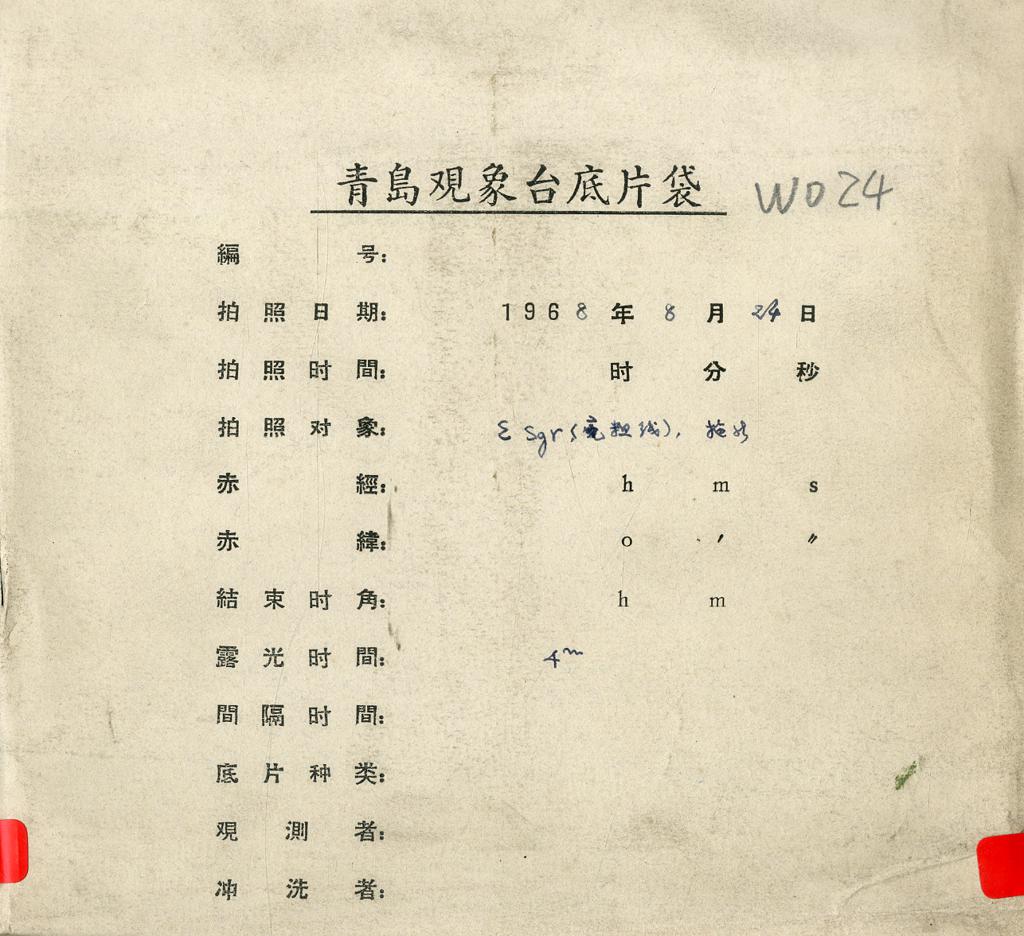 青島观象台底片袋 W024
編号:
拍照日期: 1968年8月24日
拍照时間: 时 分 秒
拍照对象: ε Sgr (亮粗线),
赤經: h m s
赤緯: o ′ ″
結束时角: h m
露光时間: 4m
間隔时間:
底片种类:
观測者:
冲洗者: